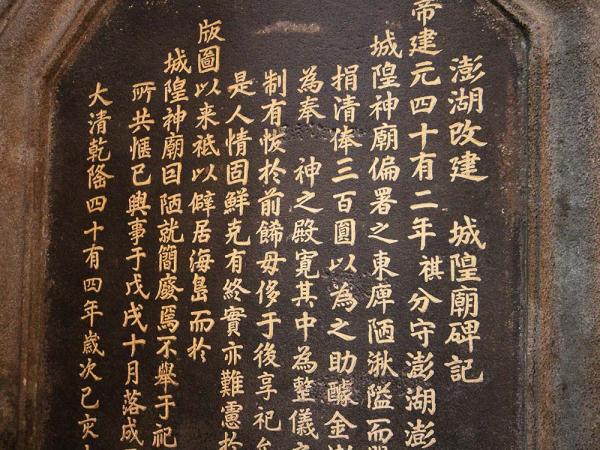 澎湖改建 城隍廟碑記
帝建元四十有二年祺分守澎湖澎
城隍神廟偏署之東庳陋湫隘而
捐清俸三百圓以為之助醵金
為奉 神之殿寬其中為整儀
制有恢於前餙毋侈于後享祀
是人情固鮮克有終實亦難憲於
版圖以來祗以僻居海島而於
城隍神廟因陋就簡廢焉不舉于祀
所共愜已興事于戊戌十月落成
大清乾隆四十有四年歲次己亥